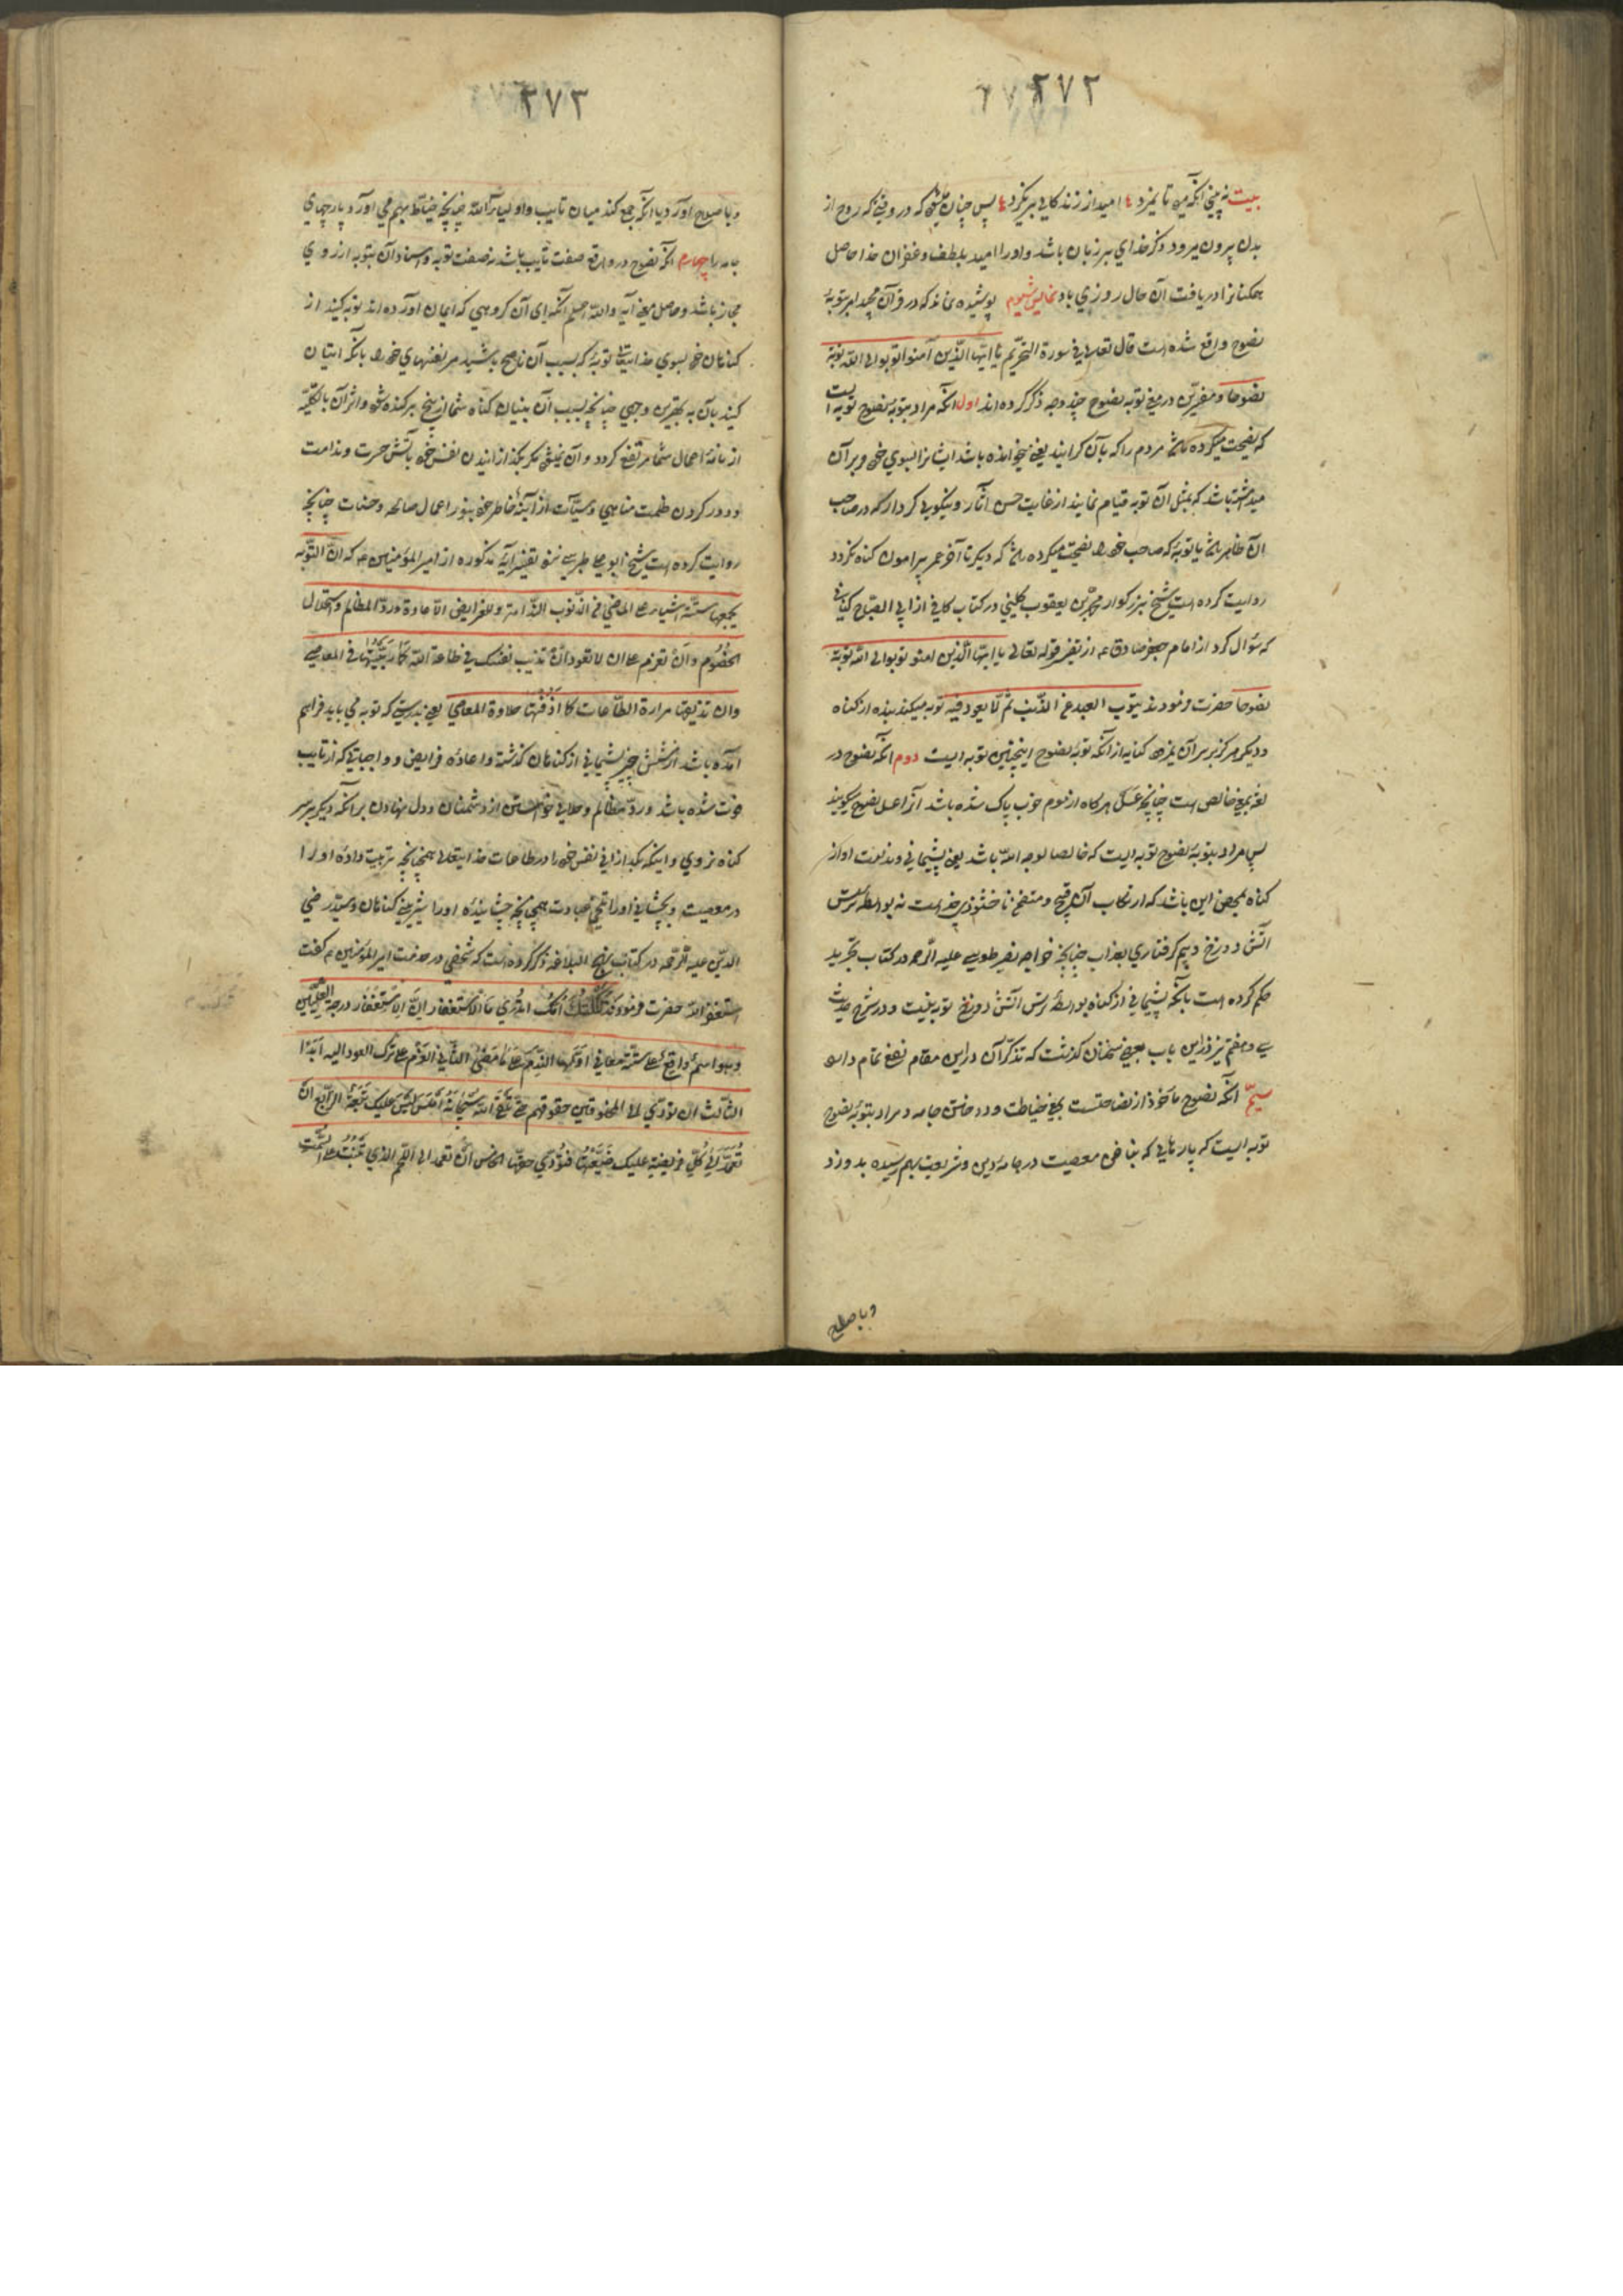 ۲۷۲
بیت نه بینی آنکه من تا نمیرد امید از زندگانی برنگیرد پس چنان که در وقتی که روح از
بدن بیرون میرود ذکر خدای بر زبان باشد و او را امید بلطف و غفران خدا حاصل
همکنانرا دریافت آن حال روزی باد نمایش سیوم پوشیده نماند که در قرآن مجید امر بتوبهٔ
نصوح واقع شده است قال تعالی فی سورة التحریم یا ایّها الّذین آمنوا توبوا الی اللّه توبة
نصوحا و مفسّرین در معنی توبه نصوح چند وجه ذکر کرده اند اول آنکه مراد بتوبهٔ نصوح توبه ایست
که نصیحت میکرده باشد مردم را که بآن گرایند یعنی خوانده باشد ایشانرا بسوی خود و بر آن
میداشته باشد که بمثل آن توبه قیام نمایند از غایت حسن آثار و نیکویی کردار که در صاحب
آن ظاهر باشد یا توبهٔ که صاحب خود را نصیحت میکرده باشد که دیگر تا آخر عمر پیرامون گناه نگردد
روایت کرده است شیخ بزرگوار محمد بن یعقوب کلینی در کتاب کافی از ابی الصباح کنانی
که سؤال کرد از امام جعفر صادق ع از تفسیر قوله تعالی یا ایّها الّذین امنوا توبوا الی اللّه توبة
نصوحا حضرت فرمودند یتوب العبد عن الذّنب ثمّ لا یعود فیه توبه میکند بنده از گناه
و دیگر هرگز بر سر آن نمیرود کنایه از آنکه توبهٔ نصوح اینچنین توبه ایست دوم آنکه نصوح در
لغة بمعنی خالص است چنانچه عسل هرگاه از موم خوب پاک شده باشد آنرا عسل نصوح میگویند
پس مراد بتوبهٔ نصوح توبه ایست که خالصا لوجه اللّه باشد یعنی پشیمانی و ندامت او از
گناه بمحض این باشد که ارتکاب آن قبیح و متضمن ناخشنودی خداست نه بواسطهٔ ترس
آتش دوزخ و بیم گرفتاری بعذاب چنانچه خواجه نصیر طوسی علیه الرّحمه در کتاب تجرید
حکم کرده است بآنکه پشیمانی از گناه بواسطهٔ ترس آتش دوزخ توبه نیست و در شرح حدیث
سی و هفتم نیز در این باب بعضی سخنان گذشت که تذکّر آن در این مقام نفع تمام دارد
سیّم آنکه نصوح مأخوذ از نصاحتست بمعنی خیاطت و دوختن جامه و مراد بتوبهٔ نصوح
توبه ایست که پارهایی که بناخن معصیت در جامهٔ دین و شریعت بهم رسیده بدوزد
و باصلاح
۲۷۳
و باصلاح آورد یا آنکه جمع کند میان تایب و اولیاء اللّه چنانچه خیّاط بهم می آورد پارچهای
جامه را چهارم آنکه نصوح در واقع صفت تایب باشد نه صفت توبه و اسناد آن بتوبه از روی
مجاز باشد و حاصل معنی آیه واللّه اعلم آنکه ای آن گروهی که ایمان آورده اند توبه کنید از
گناهان خود بسوی خدایتعالی توبهٔ که بسبب آن ناصح باشید مر نفسهای خود را بآنکه اتیان
کنید بآن به بهترین وجهی چنانچه بسبب آن بنیان گناه شما از بیخ برکنده شود و اثر آن بالکلیّه
از نامهٔ اعمال شما مرتفع گردد و آن نمیشود مگر بگدازانیدن نفس خود بآتش حسرت و ندامت
و دور کردن ظلمت مناهی و سیّآت از آینهٔ خاطر خود بنور اعمال صالحه و حسنات چنانچه
روایت کرده است شیخ ابو علی طبرسی نزد تفسیر آیهٔ مذکوره از امیر المؤمنین ع که انّ التّوبه
یجمعها ستّة اشیاء علی الماضی من الذّنوب النّدامة و للفرایض الاعادة و ردّ المظالم و استحلال
الخصوم و أن تعزم علی ان لا تعود و ان تذیب نفسک فی طاعة اللّه کما ربّیتها فی المعاصی
و ان تذیقها مرارة الطّاعات کما أذقتها حلاوة المعاصی یعنی بدرستی که توبه می باید فراهم
آمده باشد از شش چیز پشیمانی از گناهان گذشته و اعادهٔ فرایض و واجباتی که از تایب
فوت شده باشد و ردّ مظالم و حلالی خواستن از دشمنان و دل نهادن بر آنکه دیگر بر سر
گناه نروی و اینکه بگدازانی نفس خود را در طاعات خدایتعالی همچنانچه تربیت دادهٔ او را
در معصیت و بچشانی او را تلخی عبادت همچنانچه چشانیدهٔ او را شیرینی گناهان و سیّد رضی
الدّین علیه الرّحمه در کتاب نهج البلاغه ذکر کرده است که شخصی در خدمت امیر المؤمنین ع گفت
استغفر اللّه حضرت فرمود ثکلتک امّک اتدری ما الاستغفار انّ الاستغفار درجة العلّیین
و هو اسم واقع علی ستّة معانی اوّلها النّدم علی ما مضی الثّانی العزم علی ترک العود الیه ابدًا
الثّالث ان تؤدّی الی المخلوقین حقوقهم حتّی تلقی اللّه سبحانه املس لیس علیک تبعة الرّابع ان
تعمد الی کلّ فریضة علیک ضیّعتها فتؤدّی حقّها الخامس ان تعمد الی اللّحم الذی نبت علی السّحت